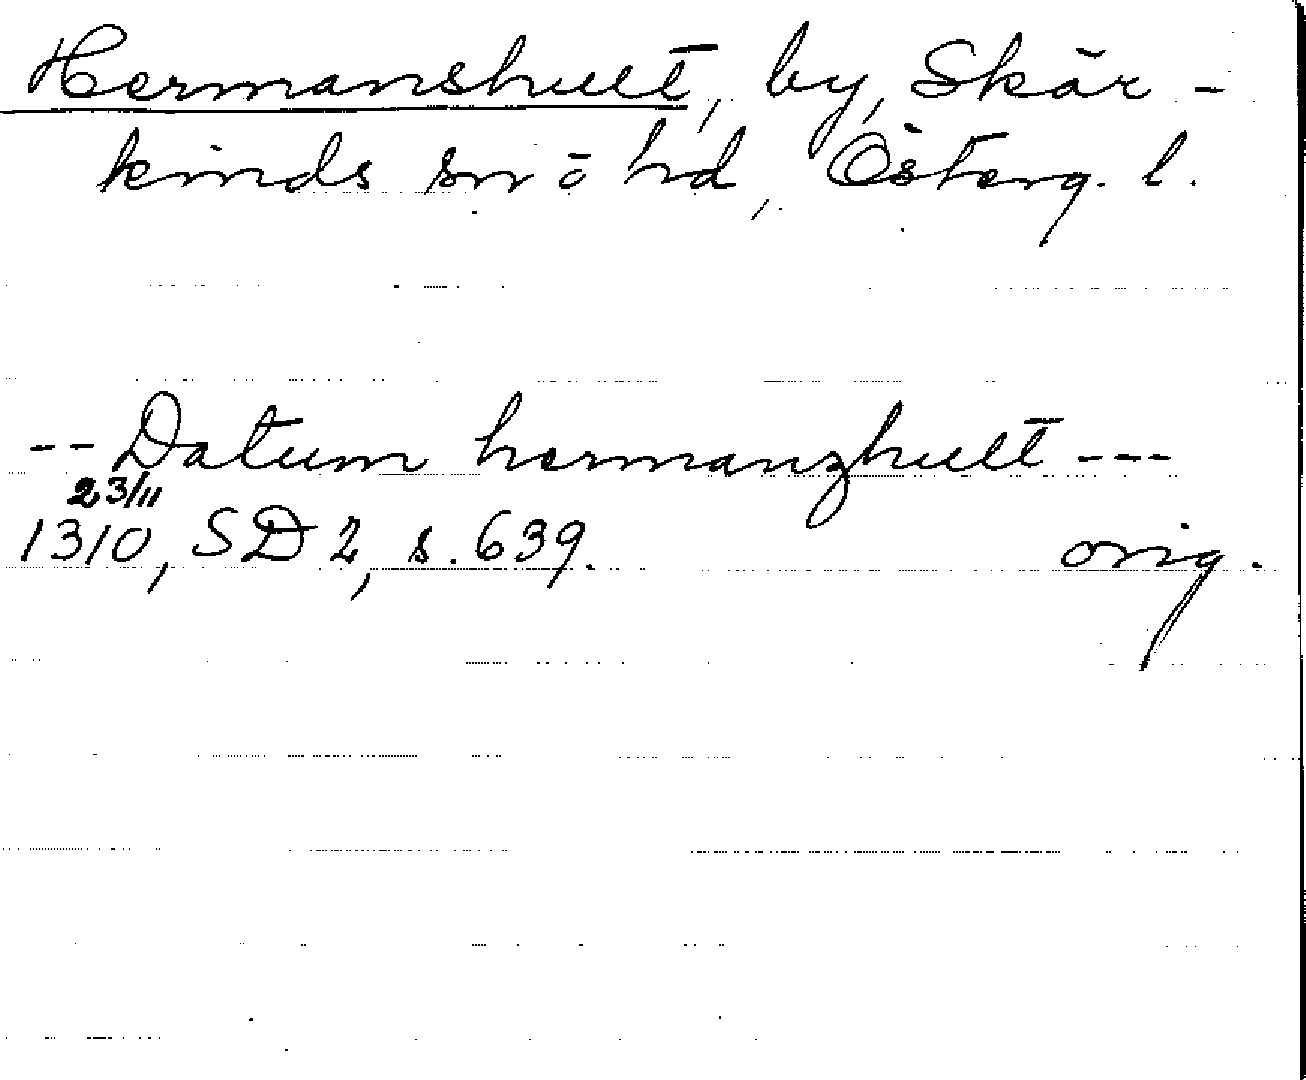 Hermanshult, by, Skär-
kinds sn o hd, Österg. l.
-- Datum hermanzhult ---
23/11
1310, SD 2, s. 639. orig.